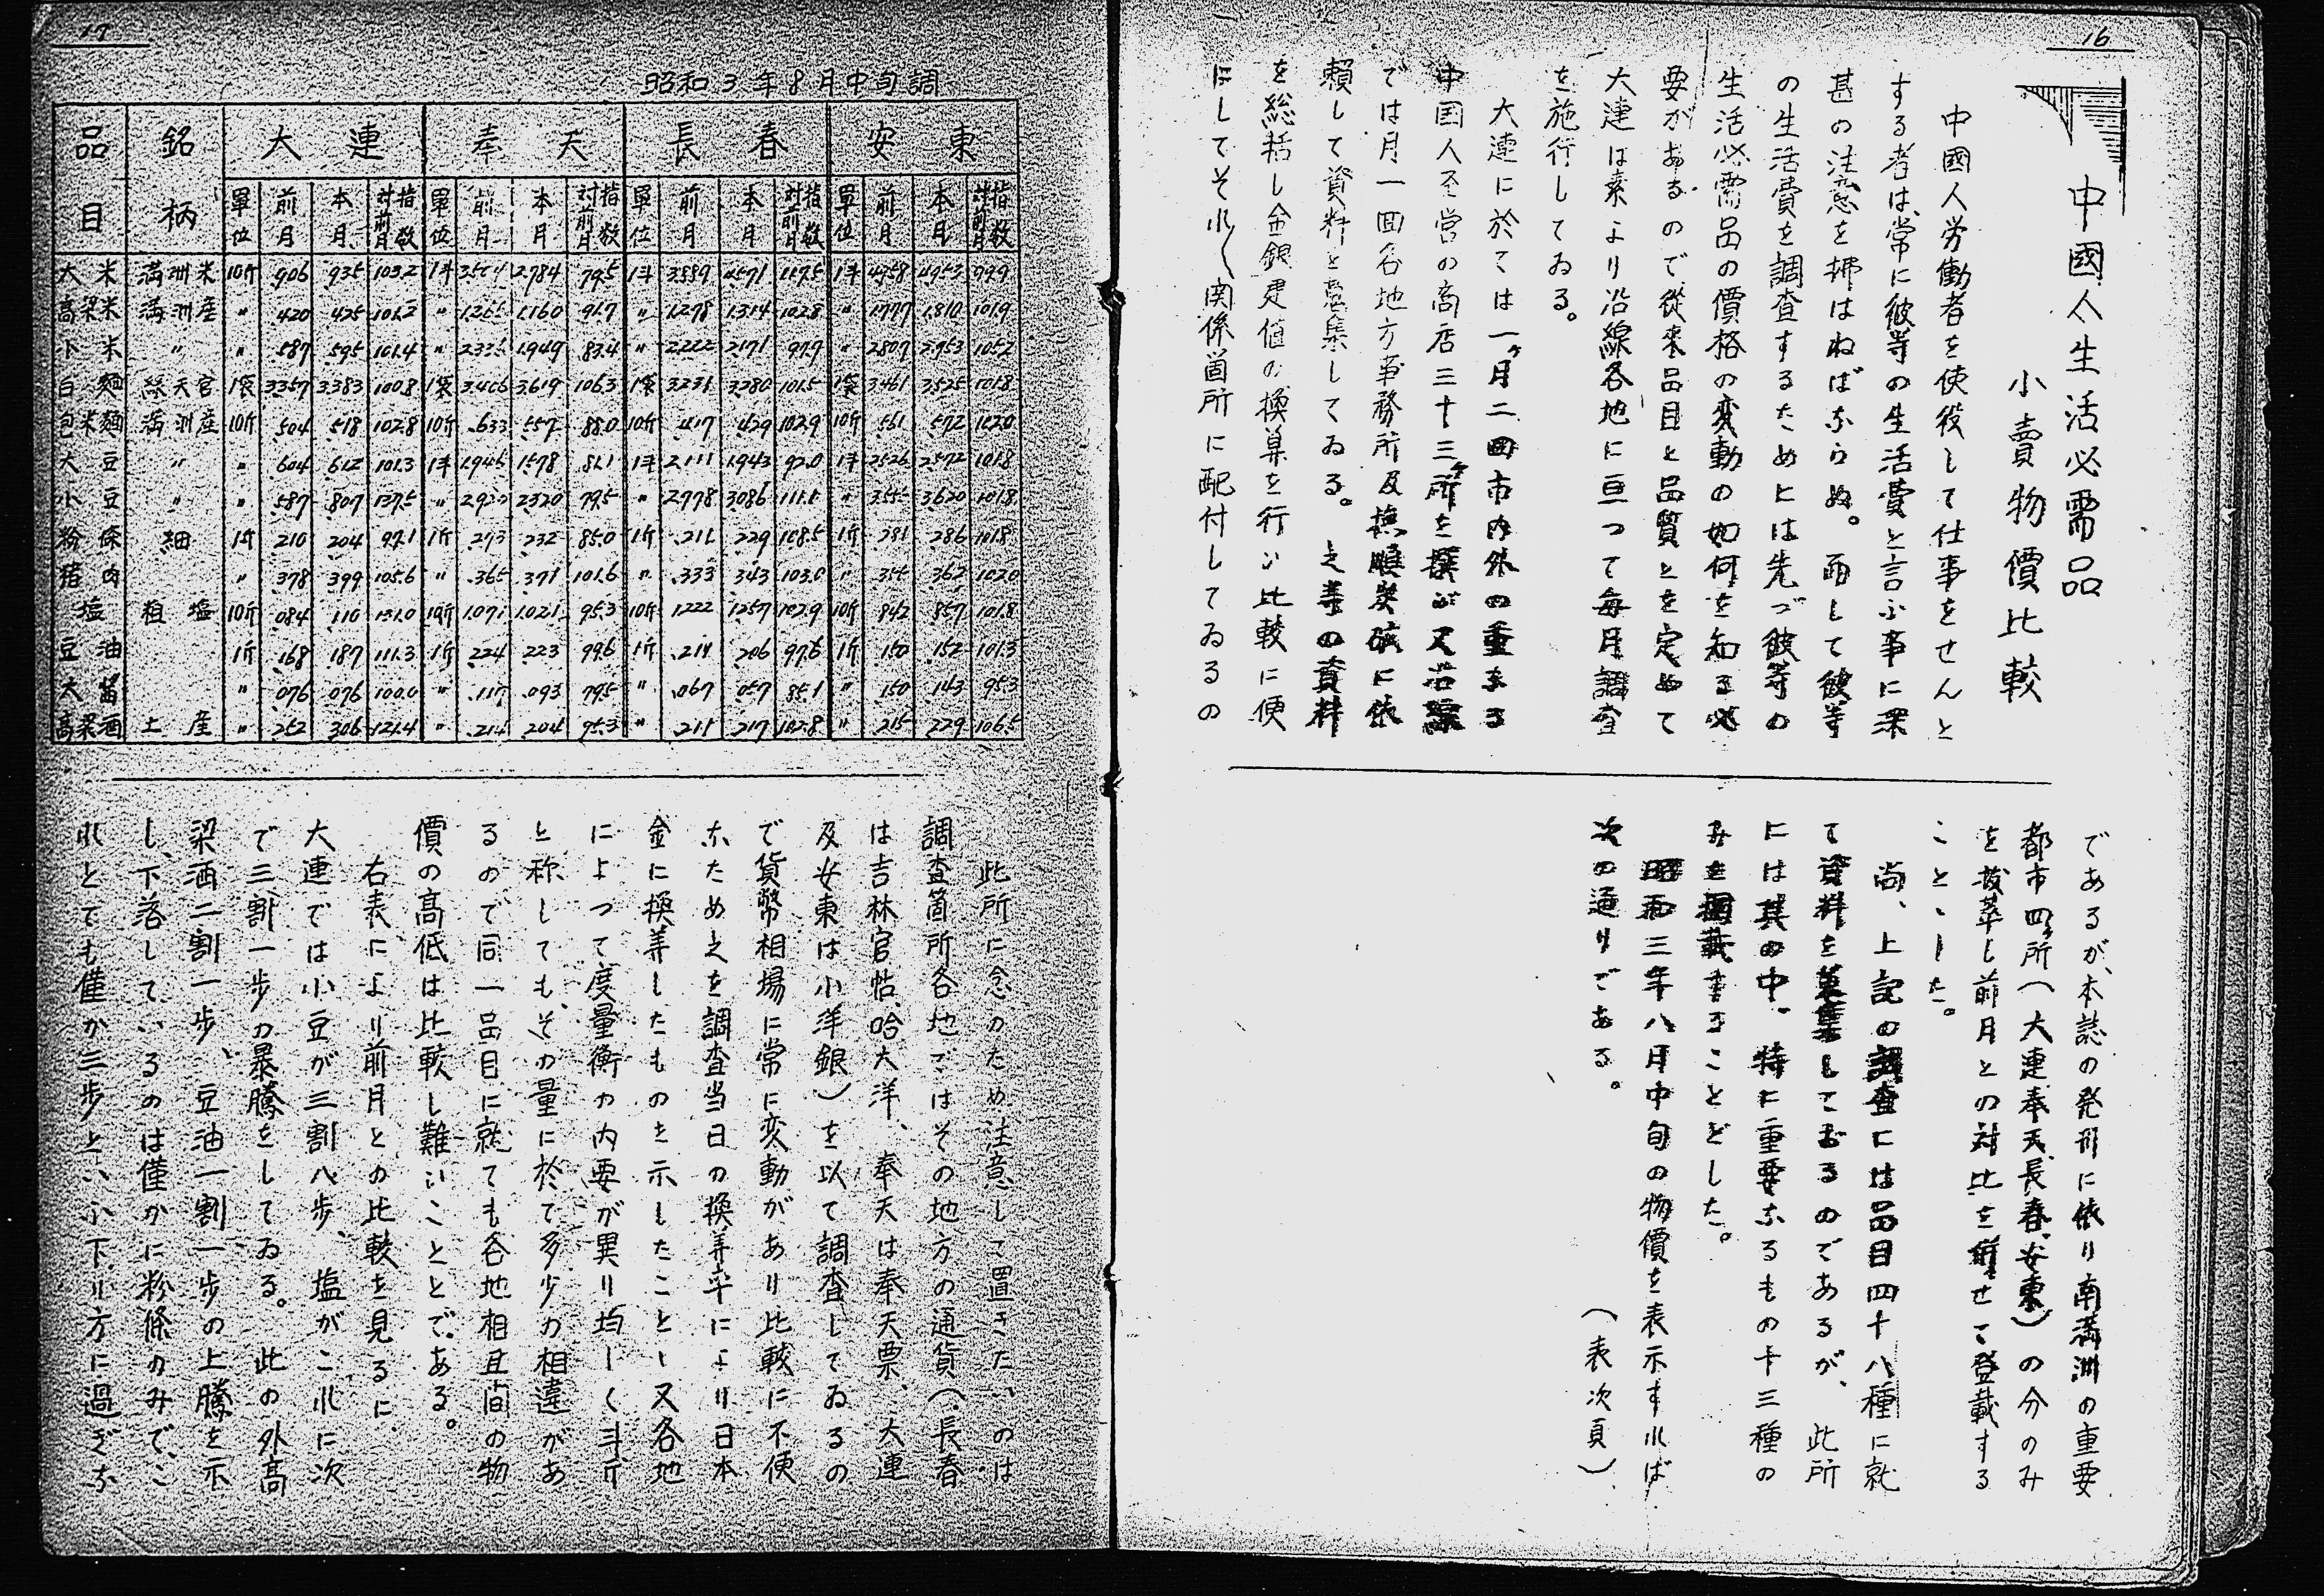 16
中國人生活必需品
小賣物價比較
中國人労働者を使役して仕事をせんと
する者は、常に彼等の生活費と言ふ事に深
甚の注意を拂はねばならぬ。而して彼等
の生活費を調査するためには先づ彼等の
生活必需品の價格の変動の如何を知る必
要があるので、從來品目と品質とを定めて
大連は素より沿線各地に亘つて毎月調査
を施行してゐる。
大連に於ては一ヶ月二回市内外の重なる
中国人経営の商店三十三ヶ所を撰び又沿線
では月一回各地方事務所及撫順炭礦に依
頼して資料を蒐集してゐる。之等の資料
を総括し金銀建値の換算を行い比較に便
にしてそれ〱関係箇所に配付してゐるの
であるが、本誌の発刊に依り南満洲の重要
都市四ヶ所(大連奉天、長春、安東)の分のみ
を拔萃し前月との対比を併せて登載する
ことゝした。
尚、上記の調査には品目四十八種に就
て資料を蒐集しておるのであるが、此所
には其の中、特に重要なるもの十三種の
みを掲載することゝした。
昭和三年八月中旬の物價を表示すれば
次の通りである。
(表次頁)
17
昭和3年8月中旬調
品目 銘柄 大連 奉天 長春 安東
單位 前月 本月 対前月指数 單位 前月 本月 対前月指数 單位 前月 本月 対前月指数 單位 前月 本月 対前月指数
大米 満洲米 10斤 .906 .935 103.2 1斗 2.784 79.5 1斗 3.889 4.571 117.5 1斗 4.958 4.953 99.9
高粱米 満洲産 〃 .420 .425 101.2 〃 1.265 1.160 91.7 〃 1.278 1.314 102.8 〃 1.777 1.810 101.9
小米 〃 〃 .587 .595 101.4 〃 2.336 1.949 83.4 〃 2.222 2.171 97.7 〃 2.807 2.953 105.2
白麵 綠天官 1袋 3.357 3.383 100.8 1袋 3.406 3.619 106.3 1袋 3.231 3.280 101.5 1袋 3.461 3.525 101.8
包米麵 満洲産 10斤 .504 .518 102.8 10斤 .633 .557 88.0 10斤 .417 .429 102.9 10斤 .561 .572 102.0
大豆 〃 〃 .604 .612 101.3 1斗 1.946 1.578 81.1 1斗 2.111 1.943 92.0 1斗 2.526 2.572 101.8
小豆 〃 〃 .587 .807 137.5 〃 2.320 79.5 〃 2.778 3.086 111.1 〃 3.620 101.8
粉條 細 1斤 .210 .204 97.1 1斤 .273 .232 85.0 1斤 .211 .229 108.5 1斤 .281 .286 101.8
猪肉 〃 .378 .399 105.6 〃 .365 .371 101.6 〃 .333 .343 103.0 〃 .362 102.0
塩 粗塩 10斤 .084 .110 131.0 10斤 1.071 1.021 95.3 10斤 1.222 1.257 102.9 10斤 .842 .857 101.8
豆油 1斤 .168 .187 111.3 1斤 .224 .223 99.6 1斤 .211 .206 97.6 1斤 .150 .152 101.3
大醤 〃 .076 .076 100.0 〃 .117 .093 79.5 〃 .067 .057 85.1 〃 .150 .143 95.3
高粱酒 土産 〃 .252 .306 121.4 〃 .214 .204 95.3 〃 .211 .217 102.8 〃 .215 .229 106.5
此所に念のため注意して置きたいのは
調査箇所各地ではその地方の通貨(長春
は吉林官帖、哈大洋、奉天は奉天票、大連
及安東は小洋銀)を以て調査してゐるの
で貨幣相場に常に変動があり比較に不便
なため之を調査当日の換算率により日本
金に換算したものを示したことゝ又各地
によつて度量衡の内要が異り均しく斗斤
と称しても、その量に於て多少の相違があ
るので同一品目に就ても各地相互間の物
價の高低は比較し難いことゝである。
右表により前月との比較を見るに
大連では小豆が三割八歩、塩がこれに次
で三割一歩の暴騰をしてゐる。此の外高
梁酒二割一歩、豆油一割一歩の上騰を示
し、下落しているのは僅かに粉條のみで、こ
れとても僅か三歩といふ下り方に過ぎな